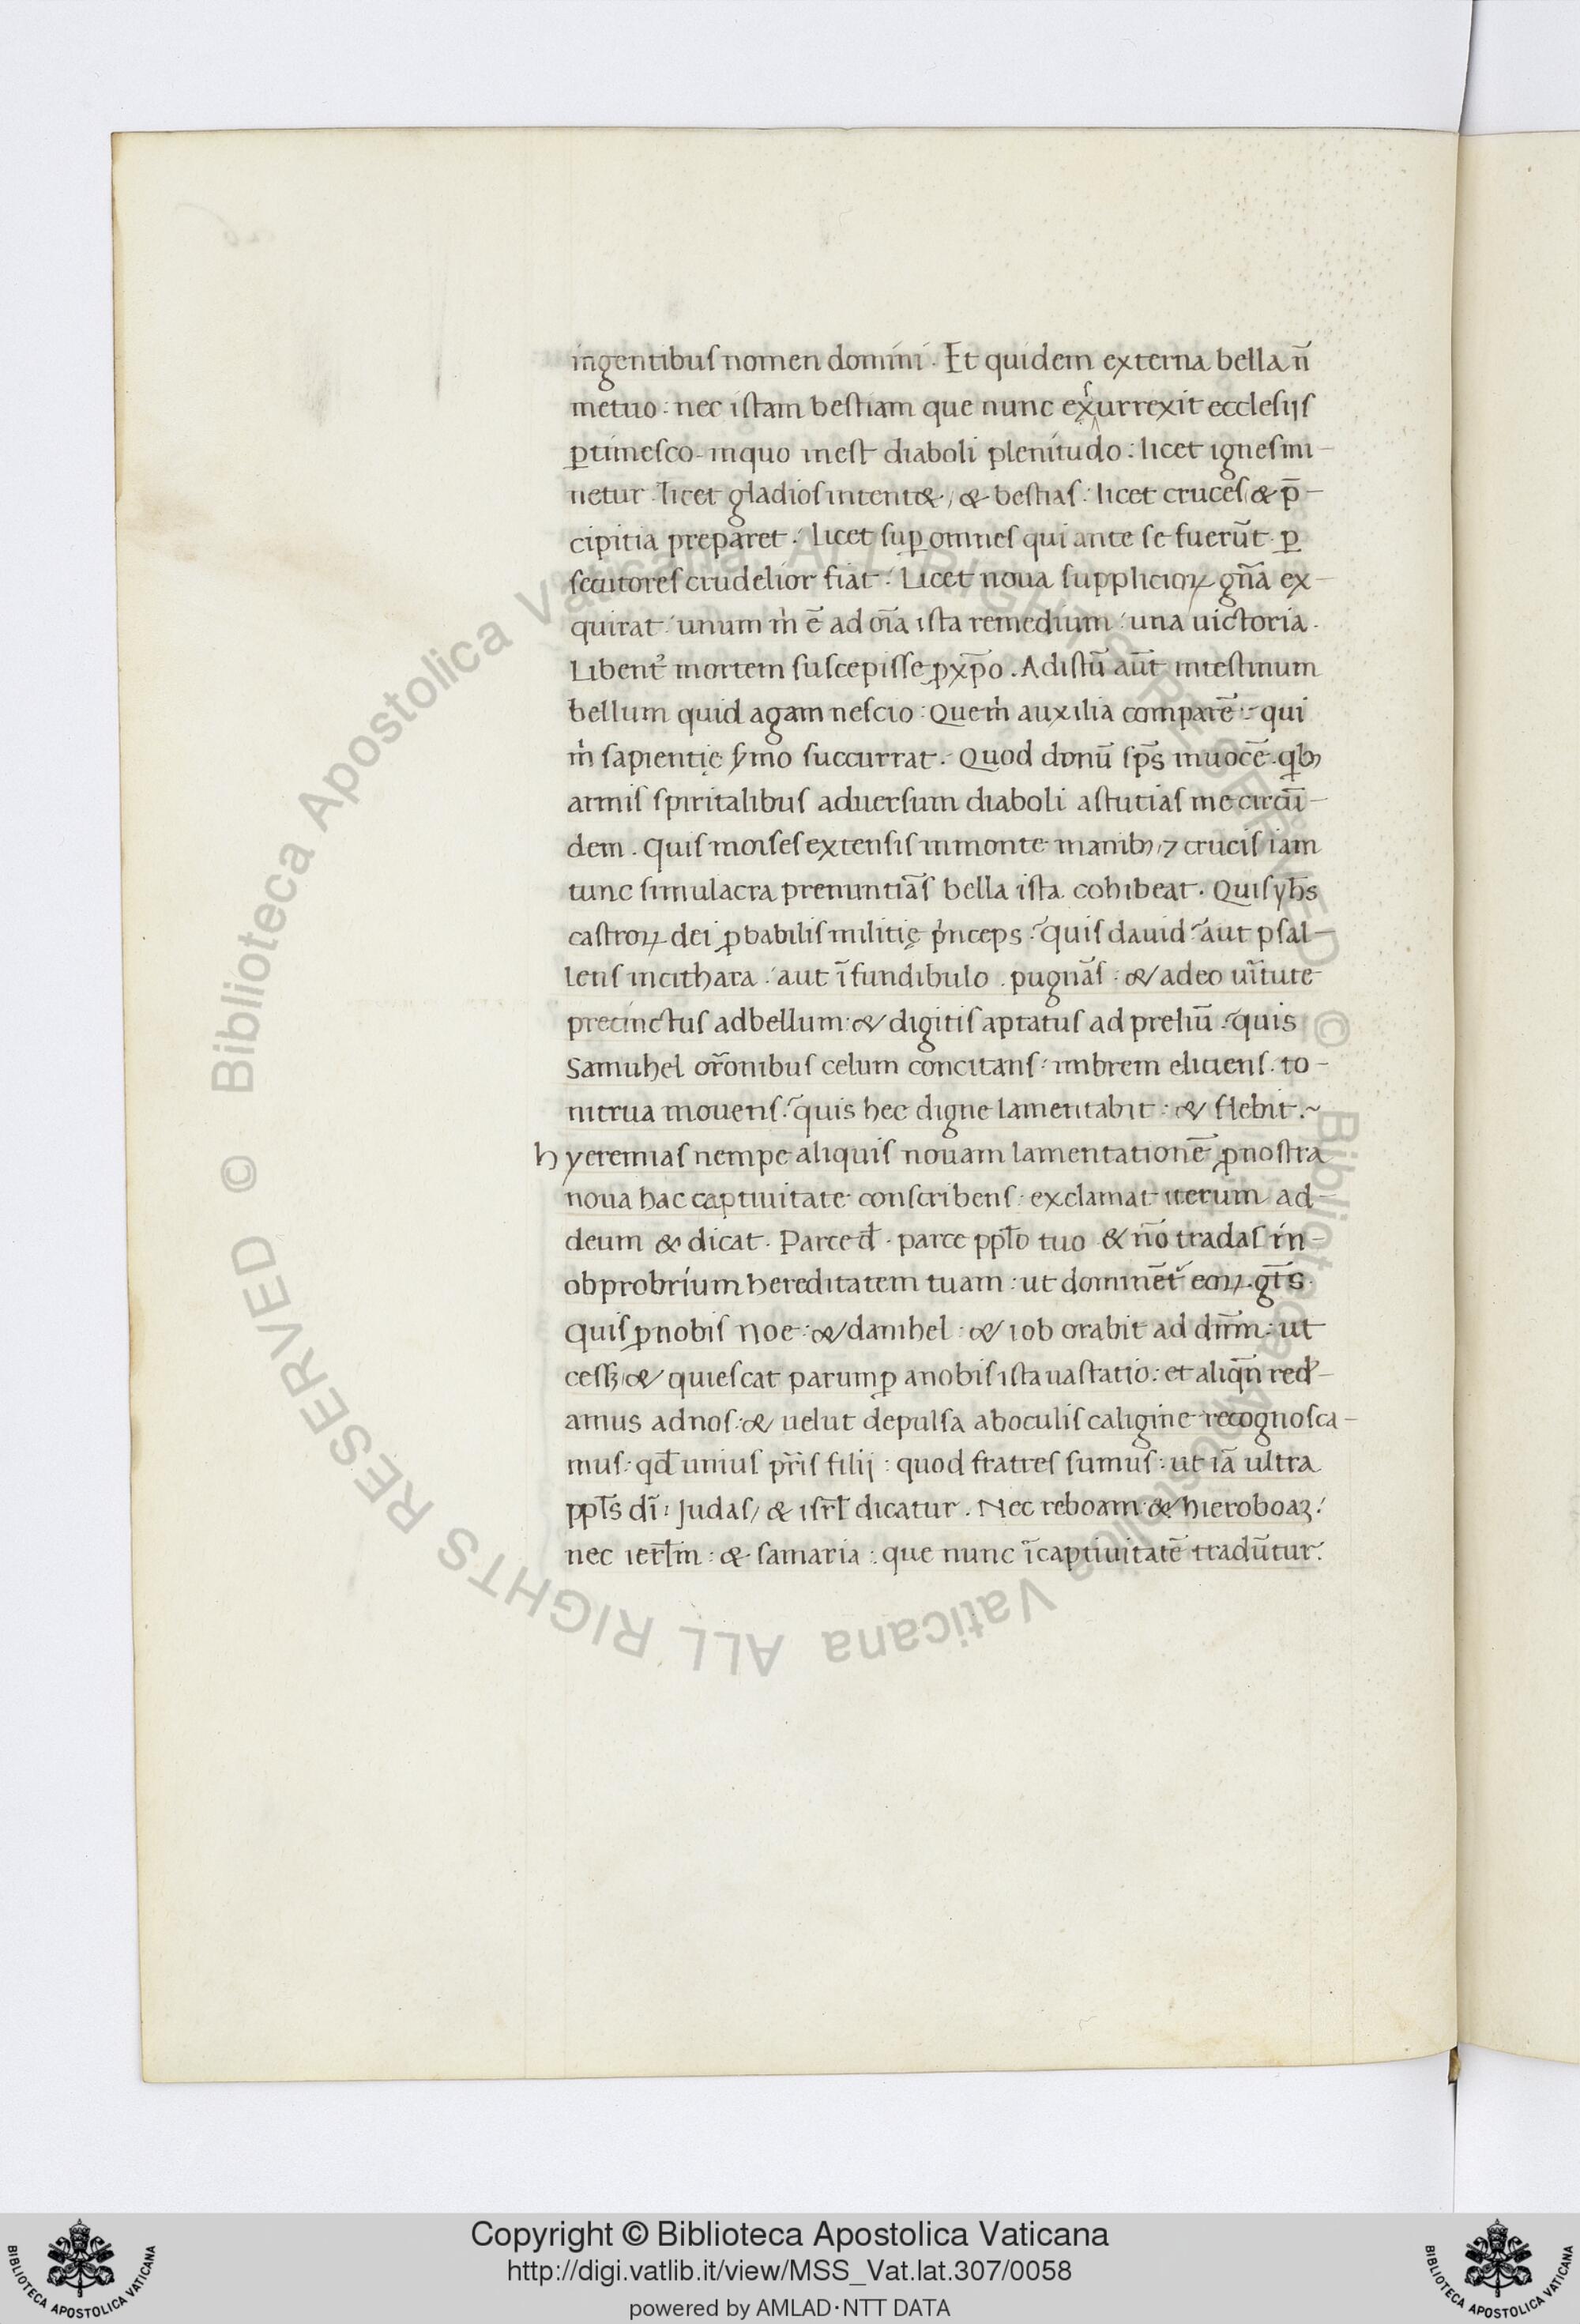 ingentibus nomen domini. Et quidem externa bella n̄
metuo: nec istam bestiam que nunc exsurrexit ecclesijs
ꝑtimesco. inquo inest diaboli plenitudo: licet ignes mi-
netur. licet gladios intent&, & bestias: licet cruces & p̄-
cipitia preparet: licet suꝑ omnes qui ante se fuerūt ꝑ
secutores crudelior fiat: Licet noua supplicioꝝ gñа ex-
quirat: unum m̉ ē ad oīa ista remedium: una uictoria.
Libent̉ mortem suscepisse ꝓ xp̄o. Ad istū aūt intestinum
bellum quid agam nescio: Quem̉ auxilia comparē: qui
m̉ sapientię ẜmo succurrat. Quod donū sp̄s inuocē. qͥbꝫ
armis spiritalibus aduersum diaboli astutias me circū-
dem. Quis moises extensis inmonte manibꝫ, ⁊ crucis iam
tunc simulacra prenuntiās bella ista cohibeat. Quis yh̄s
castroꝝ dei ꝓbabilis militię pͥnceps: quis dauid: aut psal-
lens incithara: aut ī fundibulo. pugnās: & adeo uīrtute
precinctus adbellum: & digitis aptatus ad preliū: quis
Samuhel or̄onibus celum concitans: imbrem eliciens. to-
nitrua mouens: quis hec digne lamentabit: & flebit.~
hyeremias nempe aliquis nouam lamentationē ꝓ nostra
noua hac captiuitate conscribens: exclamat iterum ad
deum & dicat. Parce d̄. parce ppl̄o tuo & n̄o tradas in-
obprobrium hereditatem tuam: ut dominēt̉ eoꝝ. gt̄s.
Quis ꝓ nobis Noe: & danihel: & iob orabit ad dn̄m: ut
cessꝫ & quiescat parumꝑ anobis ista uastatio: et aliqn̄ red-
amus adnos: & uelut depulsa aboculis caligine recognosca-
mus: qd̄ unius pr̄is filij: quod fratres sumus: ut iā ultra
ppl̄s dī: Judas, & isrl̄ dicatur. Nec reboam & hieroboaꝫ:
nec ierl̄m: & samaria: que nunc ī captiuitatē tradūtur.
© Biblioteca Apostolica Vaticana ALL RIGHTS RESERVED
© Biblioteca Apostolica Vaticana ALL RIGHTS RESERVED
Copyright © Biblioteca Apostolica Vaticana
http://digi.vatlib.it/view/MSS_Vat.lat.307/0058
powered by AMLAD·NTT DATA
BIBLIOTECA APOSTOLICA VATICANA
BIBLIOTECA APOSTOLICA VATICANA